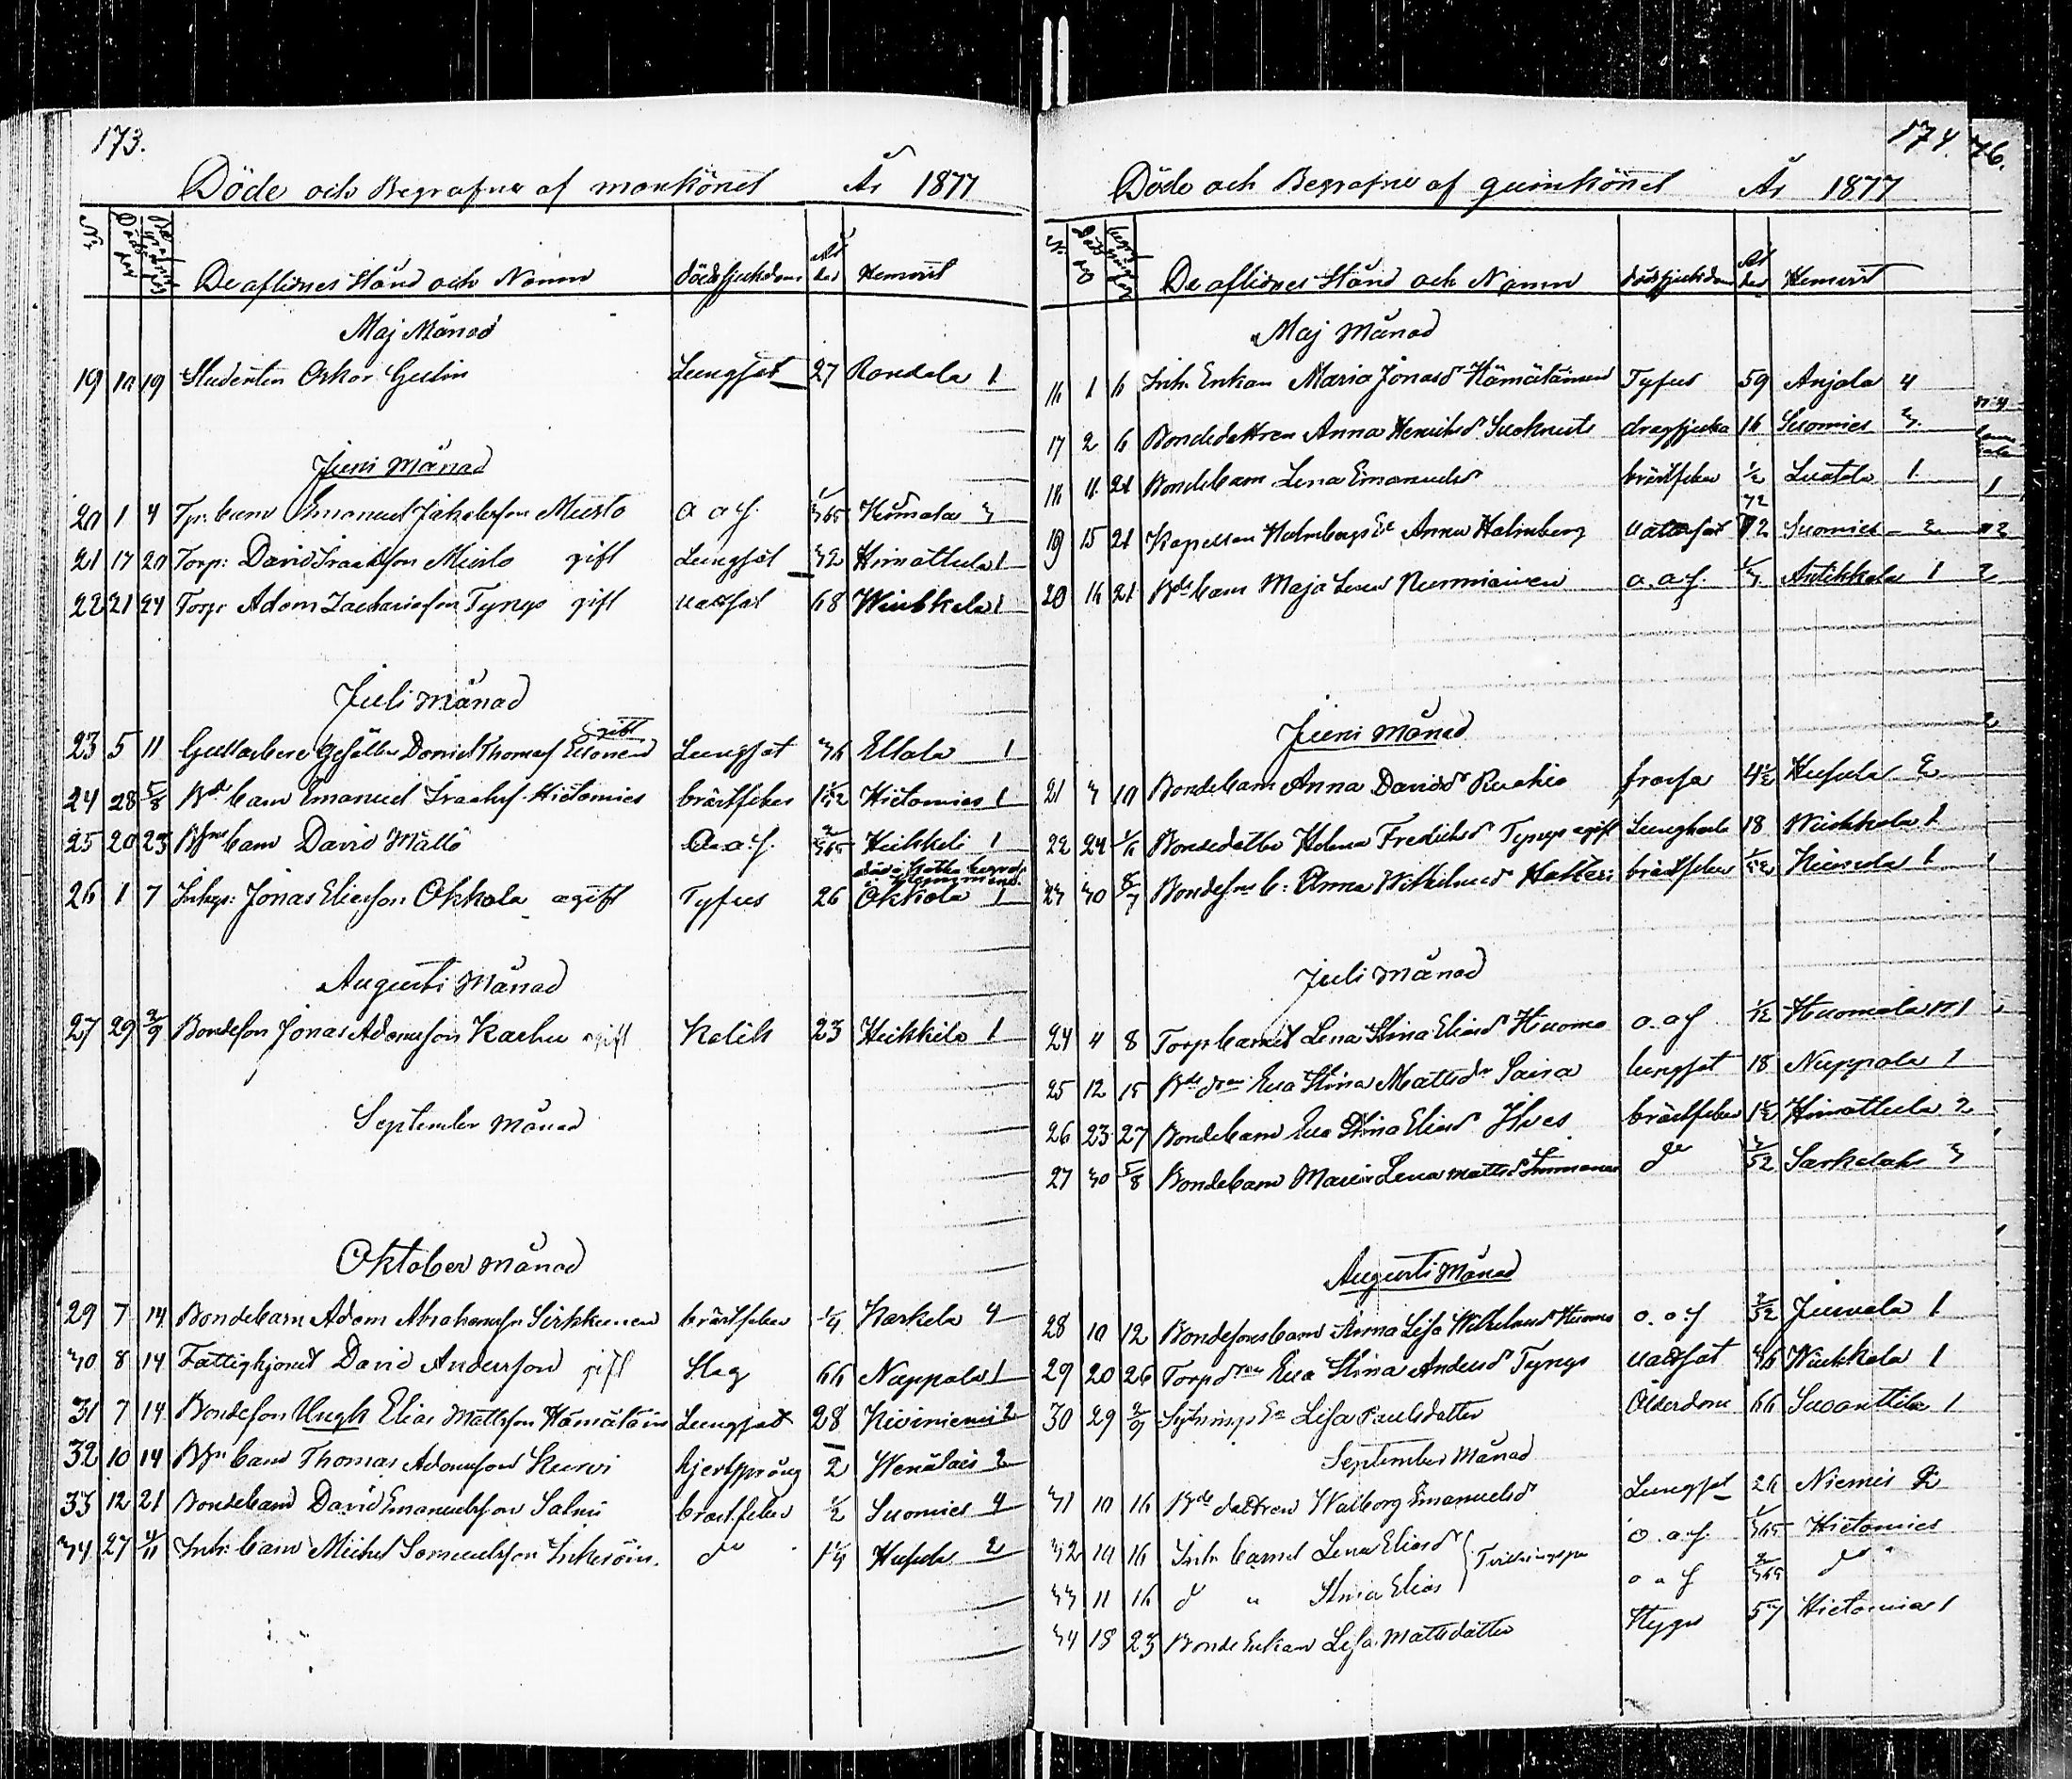 173.
Döde och Begrafne af mankönet År 1877
Nr Döds dag Begrafnings dag De aflidnes Stånd och Namn dödssjukdom Ålder Hemvist
Maj Månad
19 10 19 Studenten Oskar Gulin Lungsot 27 Rondala 1
Juni Månad
20 1 4 Tp. barn Emanuel Jakobsson Musto o a f. 1/365 3
21 17 20 Torp: David Isaaksson Musto gift Lungsot 32 Himottula 1
22 21 24 Torp Adam Zachariasson Tyrys gift vattsot 68 Wiukkala 1
Juli Månad
23 5 11 Gesällen Daniel Thomass gift Lungsot 36 Ellola 1
24 28 5/8 Bde barn Emanuel Isaaks. Hietamies bröstfeber 1 Hietamies 1
25 20 23 Bsns barn David Mällö o. a. f. 2/365 Heikkilä 1
26 1 7 Inhys: Jonas Eliasson Okkola ogift Tyfus 26 Okkola 1
Augusti Månad
27 29 2/9 Bondeson Jonas Adamsson Karhu ogift Kolik 23 Heikkilä 1
September Månad
Oktober Månad
29 7 14 Bondebarn Adam Abrahamsson Sirkkunen bröstfeber 1/4 Karkela 4
30 8 14 Fattighjonet David Andersson gift Slag 66 Nuppola 1
31 7 14 Bondeson Ungk Elias Mattsson Hämäläin Lungsot 28 Kiviniemi 2
32 10 14 Bsn barn Thomas Adamsson Kurvi hjertsprång 2 Wenälais 2
33 12 21 Bondebarn David Emanuelsson Salmi bröstfeber 1/2 Suomies 4
34 27 4/11 Inh. barn Michel Samuelsson Inkeröin. do 1 1/4 Husula 2
174.
76.
Döde och Begrafne af qvinkönet År 1877
Nr Döds dag De aflidnes Stånd och Namn dödssjukdom Ålder Hemvist
Maj Månad
16 1 6 Inh. Enkan Maria Jonasdr Hämäläinen Tyfus 59 Anjala 4
17 2 6 Bondedottren Anna Henriksdr dragsjuka 16 Suomies 3.
18 11 21 Bondebarn Lena Emanuelsdr bröstfeber 1/2 1
19 15 21 Kapellan Holmbergs Ea Anna Holmberg vattsot 72 Suomies 2
20 16 21 Bde barn Maja Lena Nurmiainen o. a. f. 1/3 Anttikkala 1
Juni Månad
21 3 10 Bondebarn Anna Davidsdr frossa 4 1/2 Husula 2
22 24 1/7 Bondedotter Helena Fredriksdr Tyrys ogift 18 Wiukkala 1
23 30 8/7 Bondesns b: Anna Wilhelmsdr bröstfeber 1
Juli Månad
24 4 8 Torpbarnet Lena Stina Eliasdr Huoma o. a f 1/12 Huomala 1
25 12 15 Bde dtrn Eva Stina Mattsdr Saira lungsot 18 Nuppola 1
26 23 27 Bondebarn Eva Stina Eliasdr Ilves bröstfeber 1 1/2 Himottula 2
27 30 5/8 Bondebarn Maria Lena Mattsdr do 3/52 3
Augusti Månad
28 10 12 Bondesonsbarn Anna Lisa Wilhelmsdr Huoma o. a. f 2/52 Junvala 1
29 20 26 Torpdtrn Eva Stina Andersdr Tyrys vattsot 36 Wiukkala 1
30 29 2/9 Sytnings Ea Lisa Paulsdotter Ålderdom 66 Suoanttila 1
September Månad
31 10 16 Bde dottren Walborg Emanuelsdr Lungsot 26 Niemis 2
32 10 16 Inh. barnet Lena Eliasdr Tvillingspar o. a. f. 1/365 Hietamies
33 11 16 do " Stina Elias o a f 2/365 do
34 18 23 Bonde Enkan Lisa Mattsdotter Stygn 57 Hietamies 1